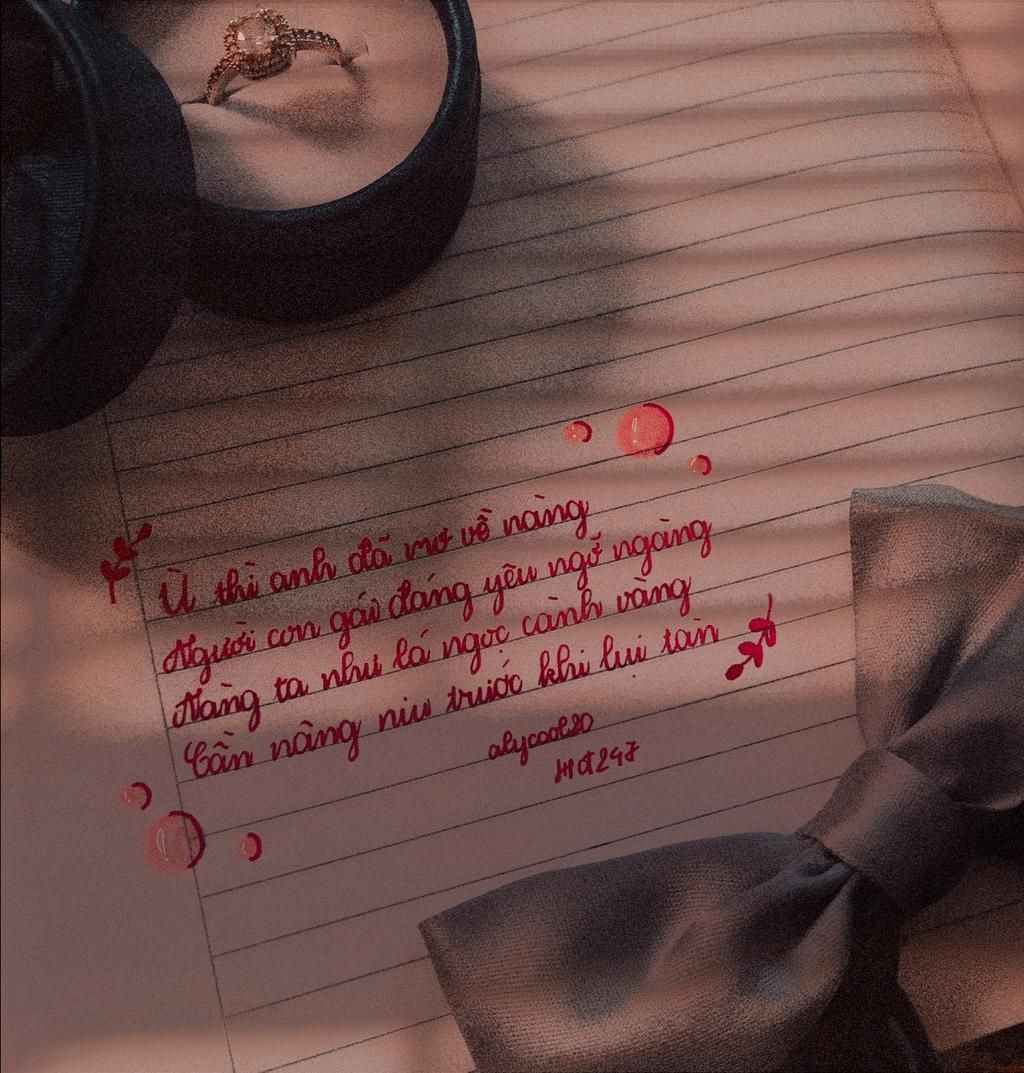 Ừ thì anh đã mơ về nàng
Người con gái đáng yêu ngỡ ngàng
Nàng ta như lá ngọc cành vàng
Cần nàng níu trước khi lụi tàn
alycool20